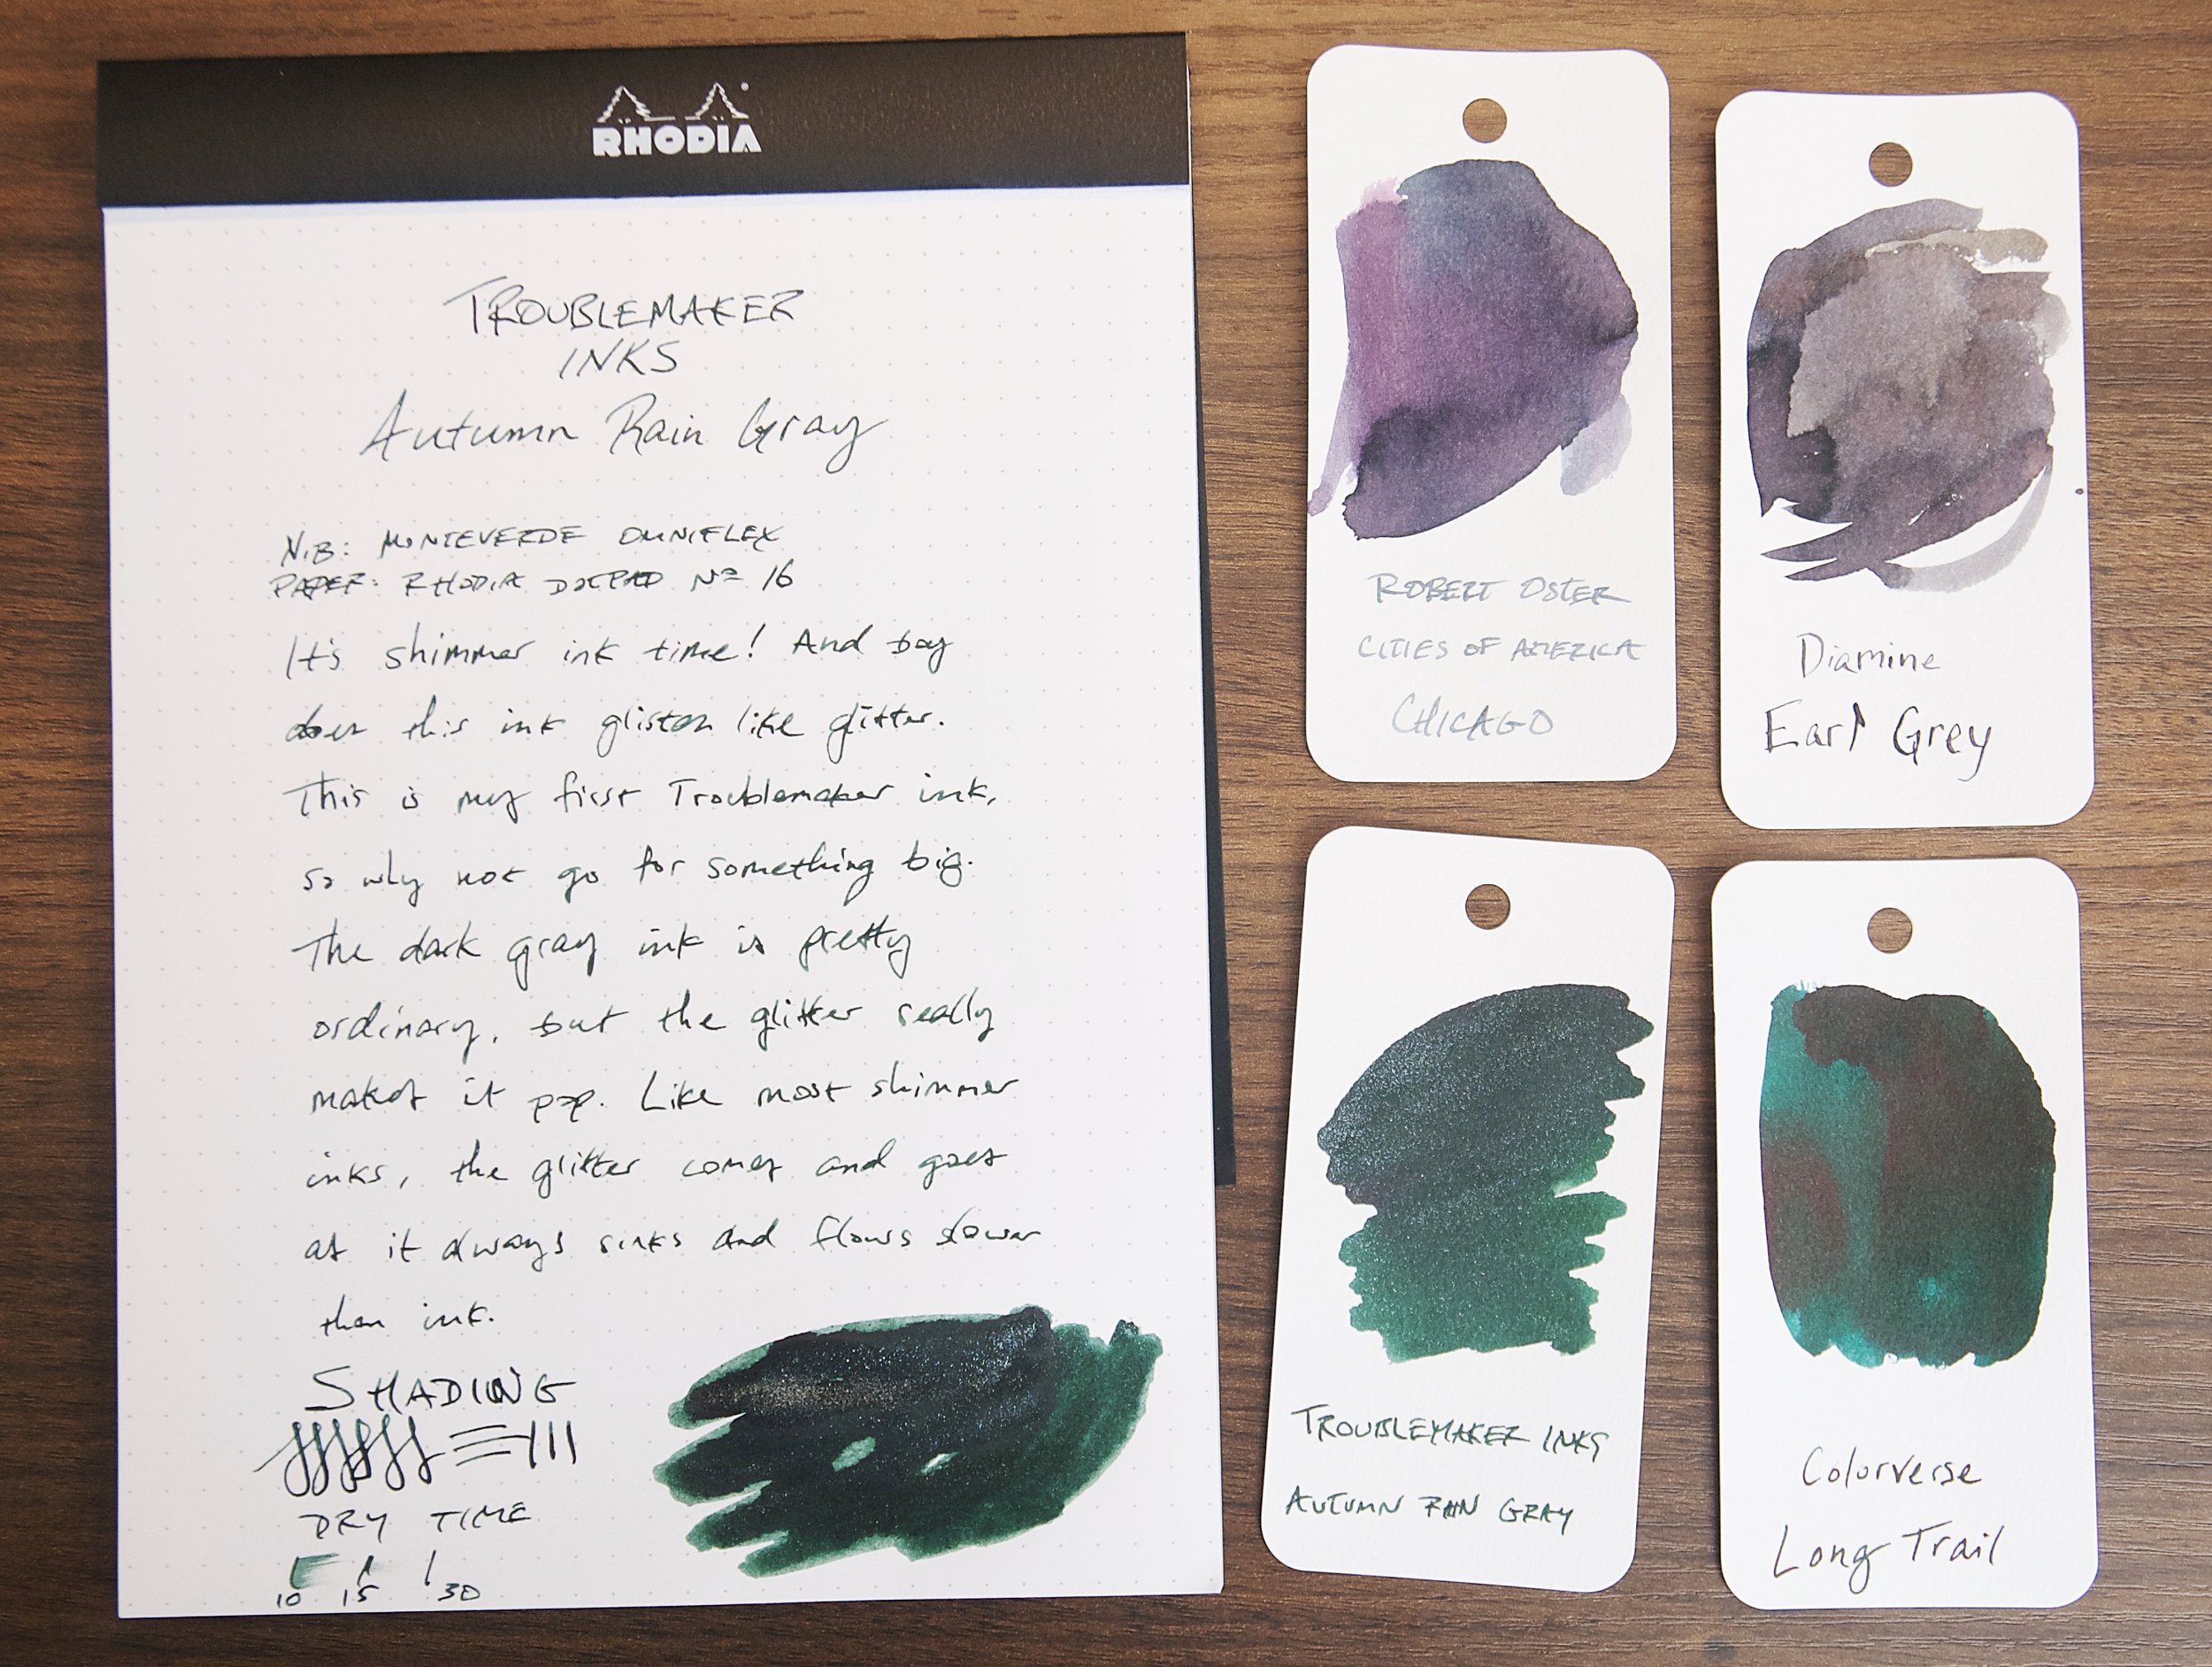 RHODIA
TROUBLEMAKER
INKS
Autumn Rain Gray
NIB: MONTEVERDE OMNIFLEX
PAPER: RHODIA DOTPAD Nº 16
It's shimmer ink time! And boy
does this ink glisten like glitter.
This is my first Troublemaker ink,
so why not go for something big.
The dark gray ink is pretty
ordinary, but the glitter really
makes it pop. Like most shimmer
inks, the glitter comes and goes
as it always sinks and flows slower
than ink.
SHADING
DRY TIME
10 15 30
ROBERT OSTER
CITIES OF AMERICA
CHICAGO
Diamine
Earl Grey
TROUBLEMAKER INKS
AUTUMN RAIN GRAY
Colorverse
Long Trail